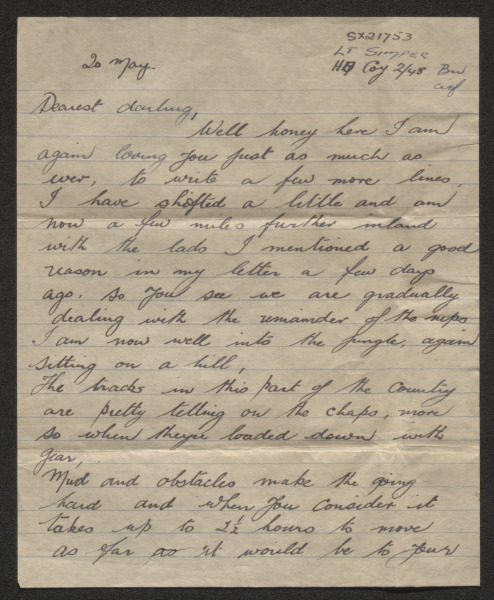 SX21753
LT SIMPER
HQ Coy 2/48 Bn
aif
20 May.
Dearest darling,
Well honey here I am
again loving you just as much as
ever, to write a few more lines.
I have shifted a little and am
now a few miles further inland
with the lads I mentioned a good
reason in my letter a few days
ago. So you see we are gradually
dealing with the remainder of the nips
I am now well into the jungle, again
sitting on a hill,
The tracks in this part of the country
are pretty telling on the chaps, more
so when theyre loaded down with
gear,
Mud and obstacles make the going
hard and when you consider it
takes up to 2½ hours to move
as far as it would be to your